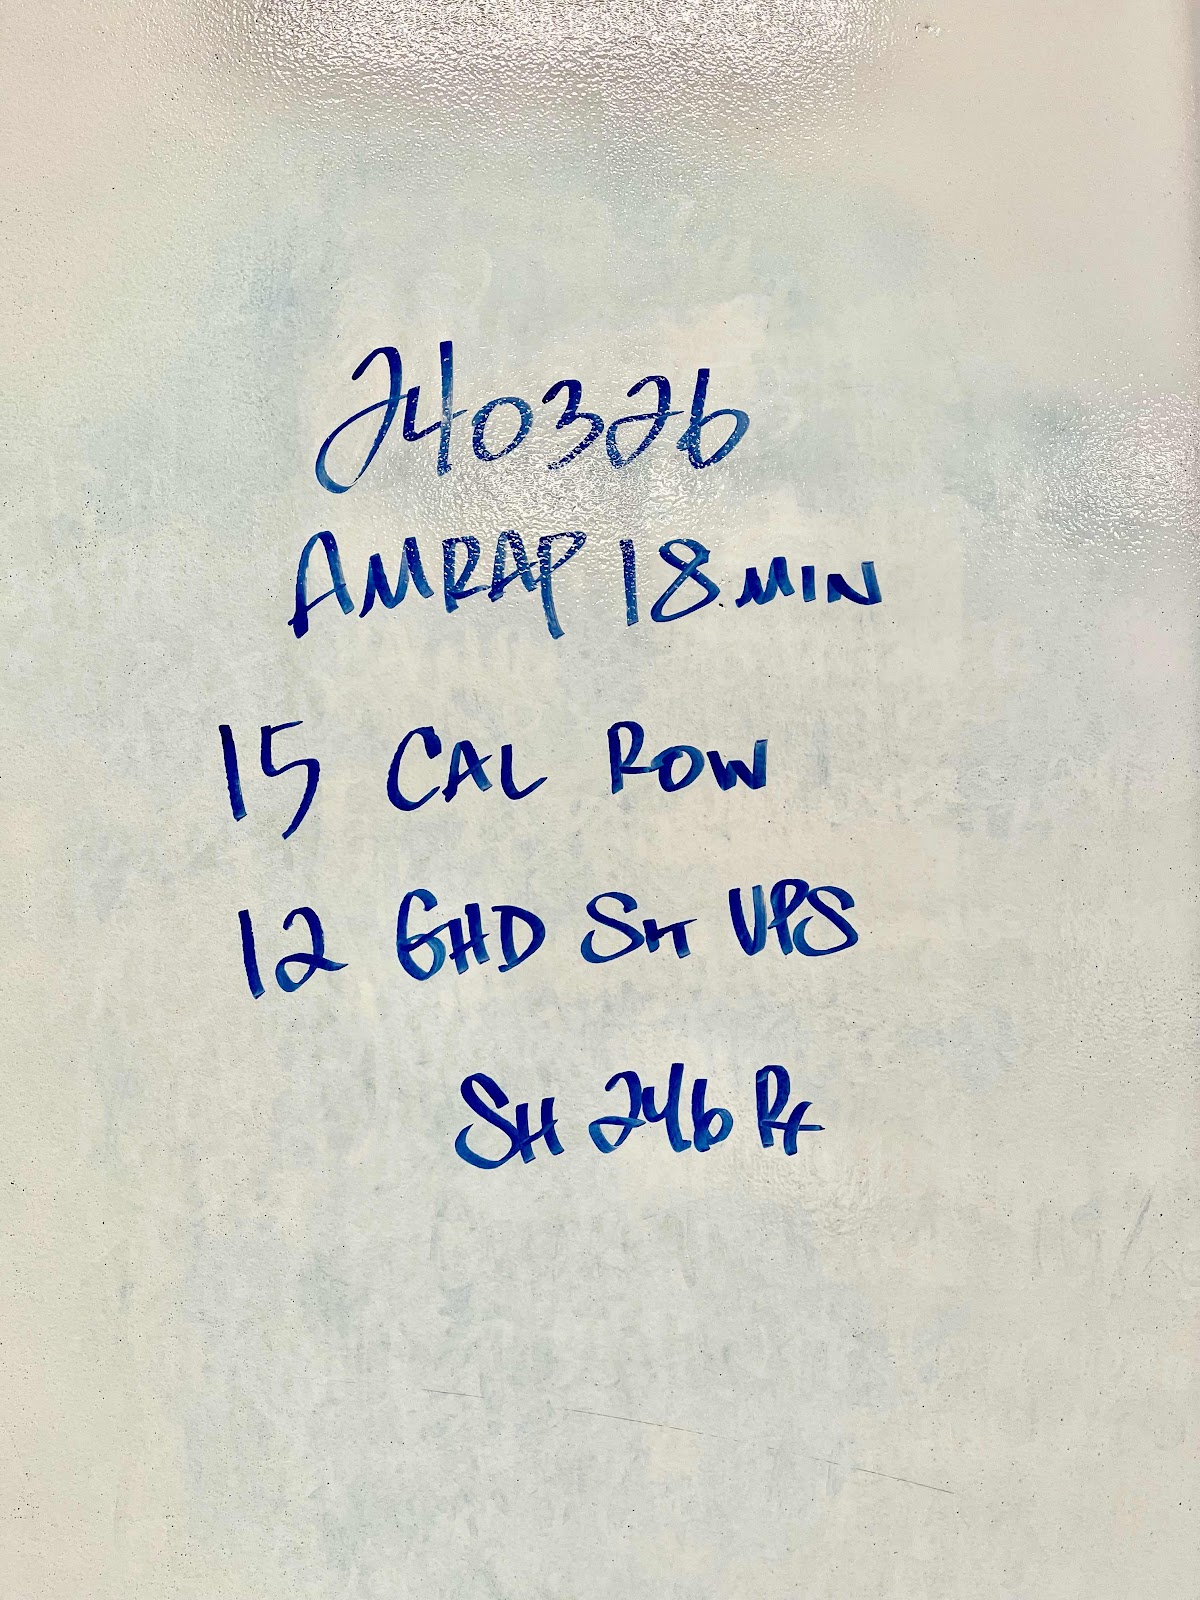 240326
AMRAP 18 MIN
15 CAL ROW
12 GHD SIT UPS
SH 246 Rx